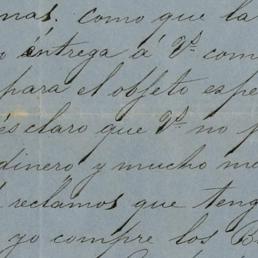 nas. como que la
entrega á Vs. com
para el objeto espe
és claro que Vs. no p
dinero y mucho me
reclamos que teng
yo compre los B